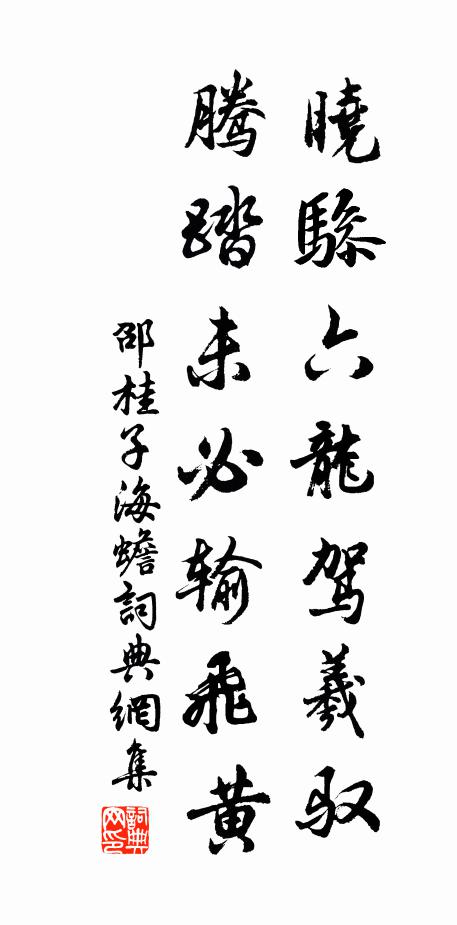 曉驂六龍駕羲馭
騰踏未必输飛黃
邵桂子海蟾詞典網集
詞典网印